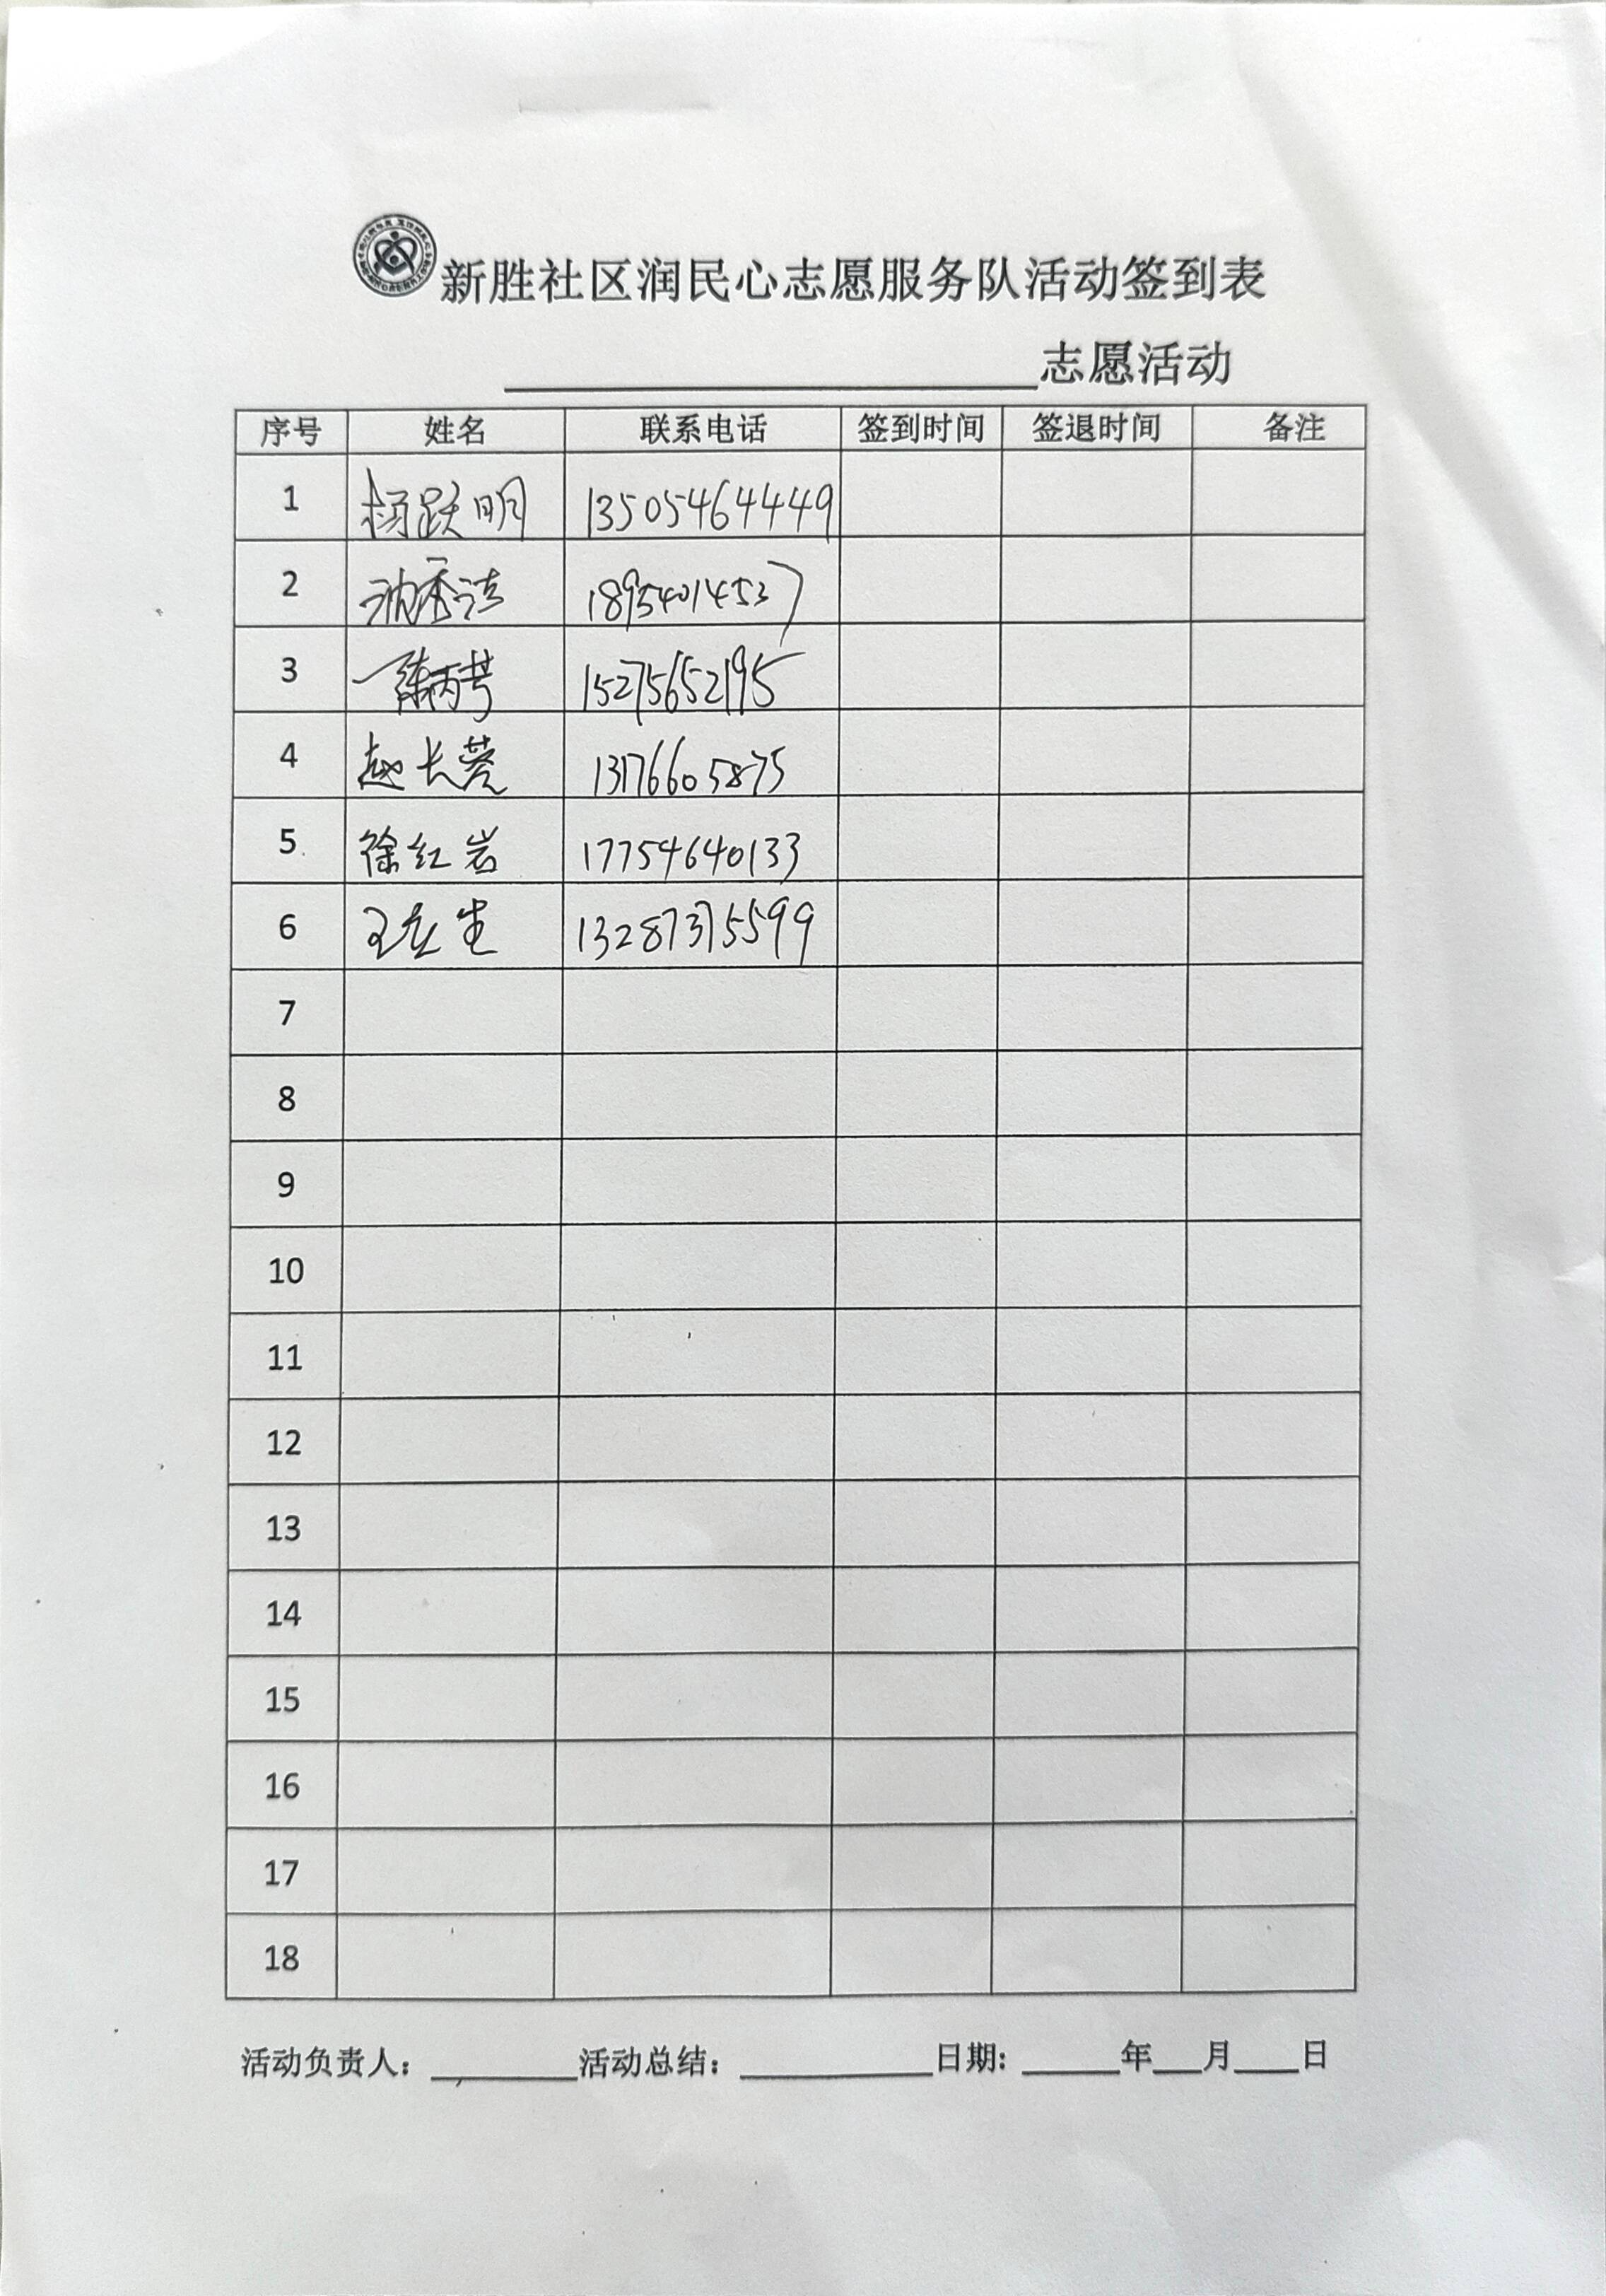 新胜社区润民心志愿服务队活动签到表
志愿活动
序号 姓名 联系电话 签到时间 签退时间 备注
1 杨跃明 13505464449
2 18954014537
3 15275652195
4 赵长蓉 13176605875
5 徐红岩 17754640133
6 13287375599
7
8
9
10
11
12
13
14
15
16
17
18
活动负责人： 活动总结： 日期： 年 月 日